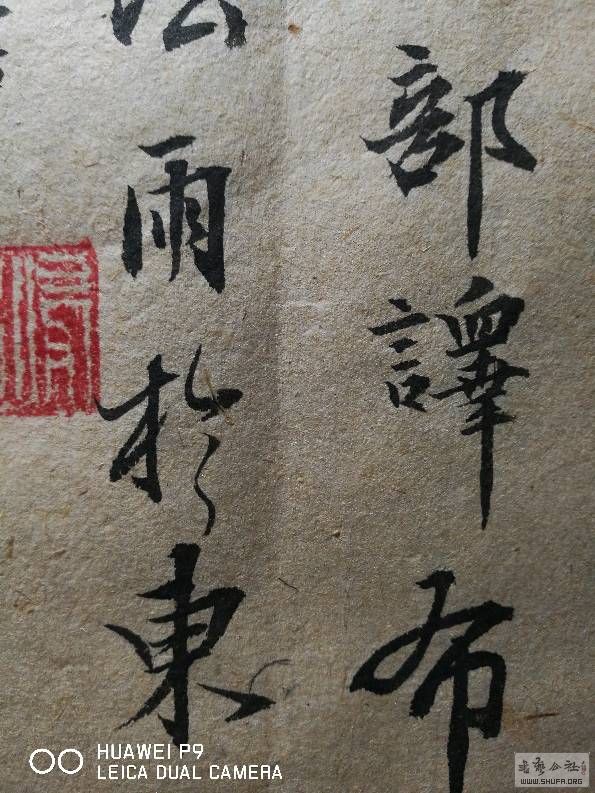 部譯布
法雨於東
HUAWEI P9
LEICA DUAL CAMERA
書藝公社
WWW.SHUFA.ORG